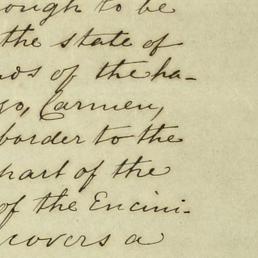 ough to be
the state of
nds of the ha-
go, Carmen,
border to the
part of the
of the Encini-
covers a